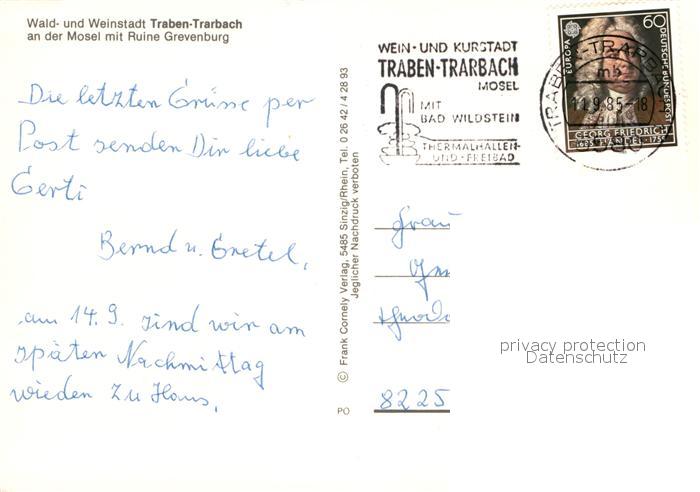 Wald- und Weinstadt Traben-Trarbach
an der Mosel mit Ruine Grevenburg
Die letzten Grüsse per
Post senden Dir liebe
Gerti
Bernd u. Gretel,
am 14. 9. sind wir am
späten Nachmittag
wieder zu Haus,
© Frank Cornely Verlag, 5485 Sinzig/Rhein, Tel. 0 26 42 / 4 28 93
Jeglicher Nachdruck verboten
PO
WEIN- UND KURSTADT
TRABEN-TRARBACH
MOSEL
MIT
BAD WILDSTEIN
THERMALHALLEN-
UND -FREIBAD
TRABEN-TRARBACH
mb
11.9.85-18
60
EUROPA
DEUTSCHE BUNDESPOST
GEORG FRIEDRICH
1685 HÄNDEL 1759
Frau
8225
privacy protection
Datenschutz